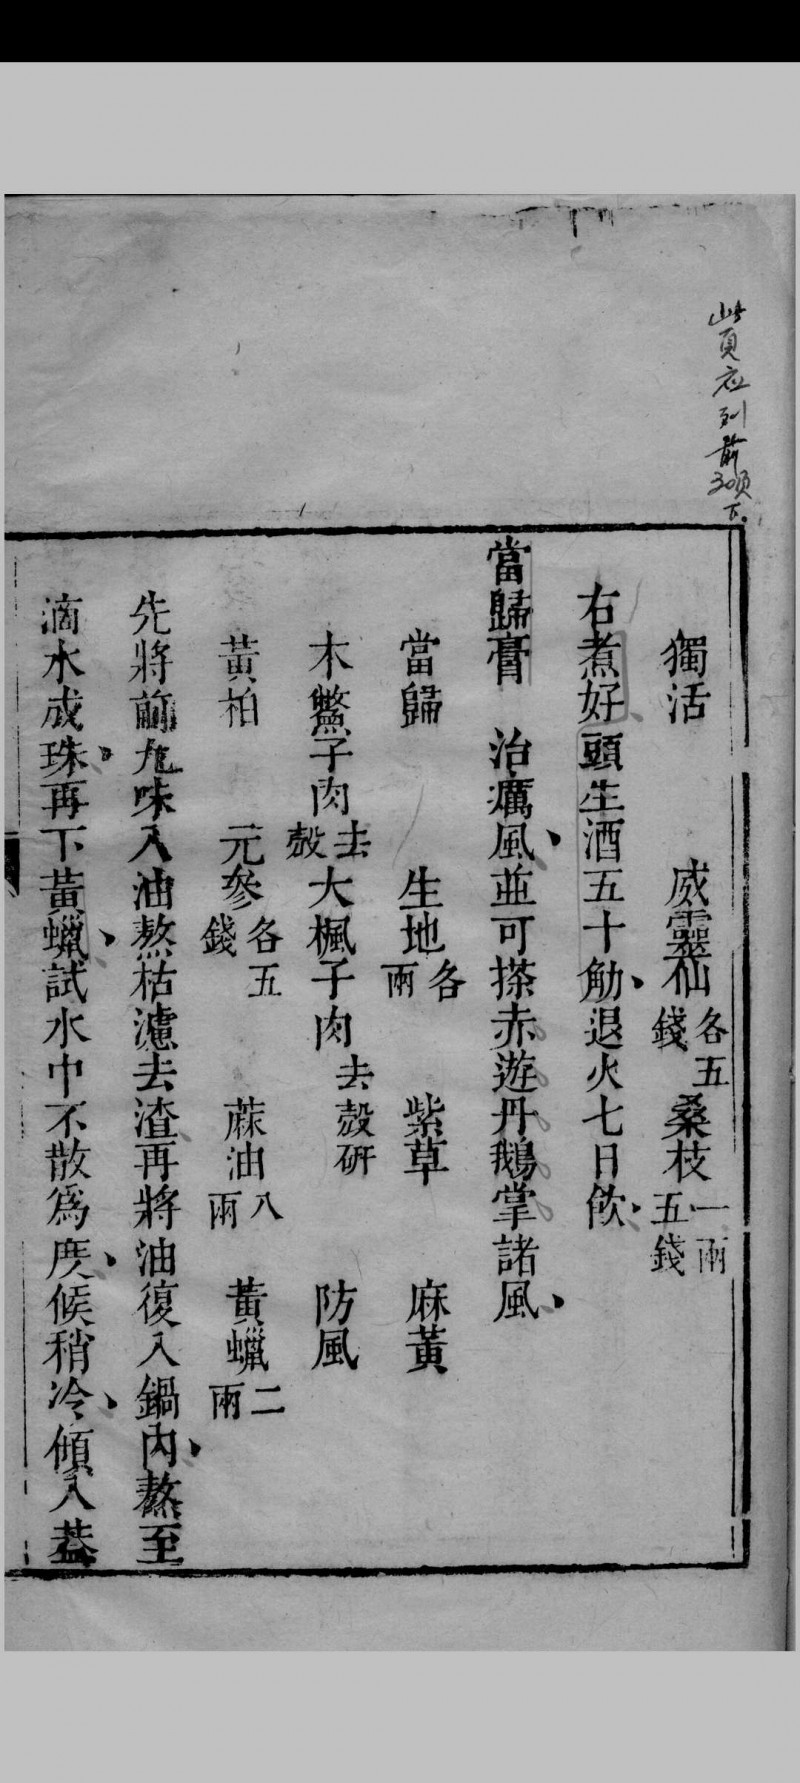 此頁应列前30頁下.
獨活　威靈仙各五錢　桑枝一兩五錢
右煮好頭生酒五十觔、退火七日飲、
當歸膏　治癘風、並可搽赤遊丹鵝掌諸風、
當歸　生地各兩　紫草　麻黃
木鱉子肉去殼　大楓子肉去殼研　防風
黃柏　元參各五錢　蔴油八兩　黃蠟二兩
先將前九味入油熬枯濾去渣再將油復入鍋內、熬至
滴水成珠、再下黃蠟、試水中不散為度、候稍冷、傾入蓋